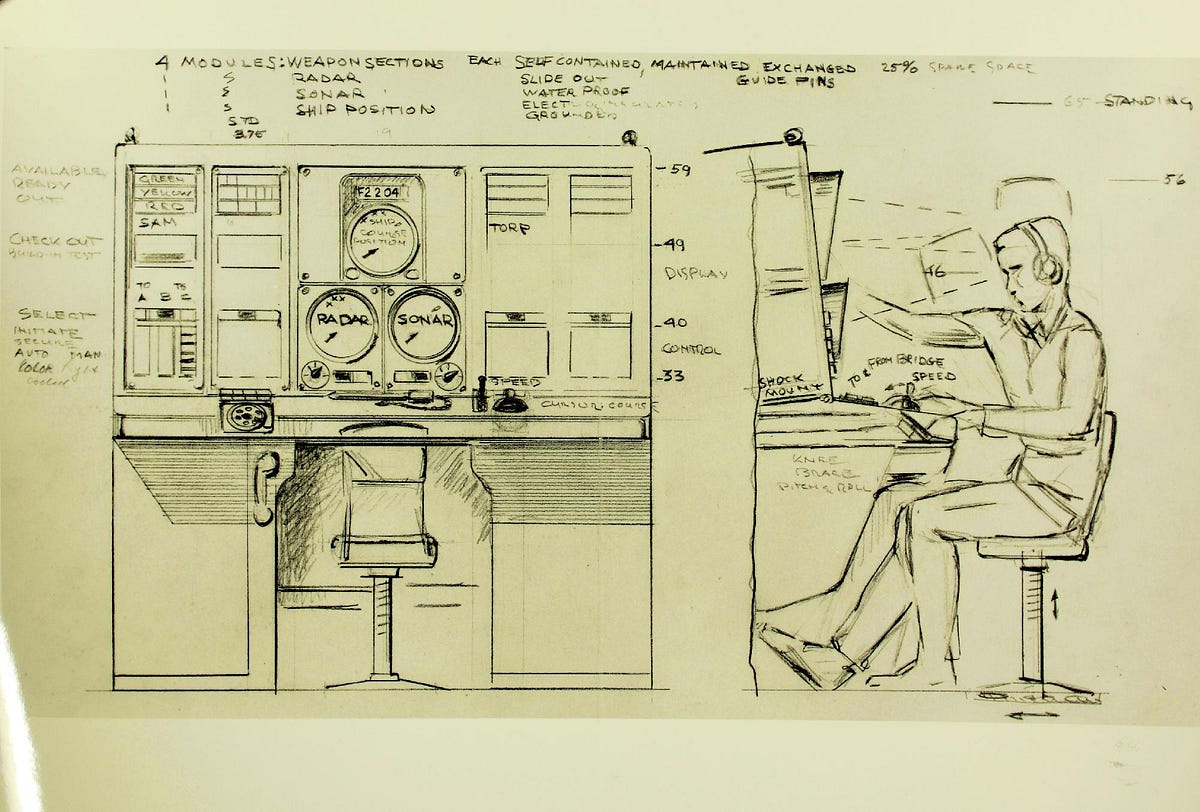 4 MODULES: WEAPON SECTIONS EACH SELF CONTAINED, MAINTAINED EXCHANGED 25% SPARE SPACE
RADAR SLIDE OUT GUIDE PINS
SONAR WATER PROOF
SHIP POSITION
STD GROUNDED
65 STANDING
AVAILABLE
READY
OUT
GREEN
YELLOW
RED
SAM
F2204
SHIPS
COURSE
POSITION
TORP
59
56
CHECK OUT
BUILD-IN TEST
49
DISPLAY
16
TO
A B C
SELECT
INITIATE
SECURE
AUTO MAN
RADAR
SONAR
40
CONTROL
33
SPEED
CURSOR: COURSE
SHOCK
MOUNT
TO & FROM BRIDGE
SPEED
KNEE
BRACE
PITCH & ROLL